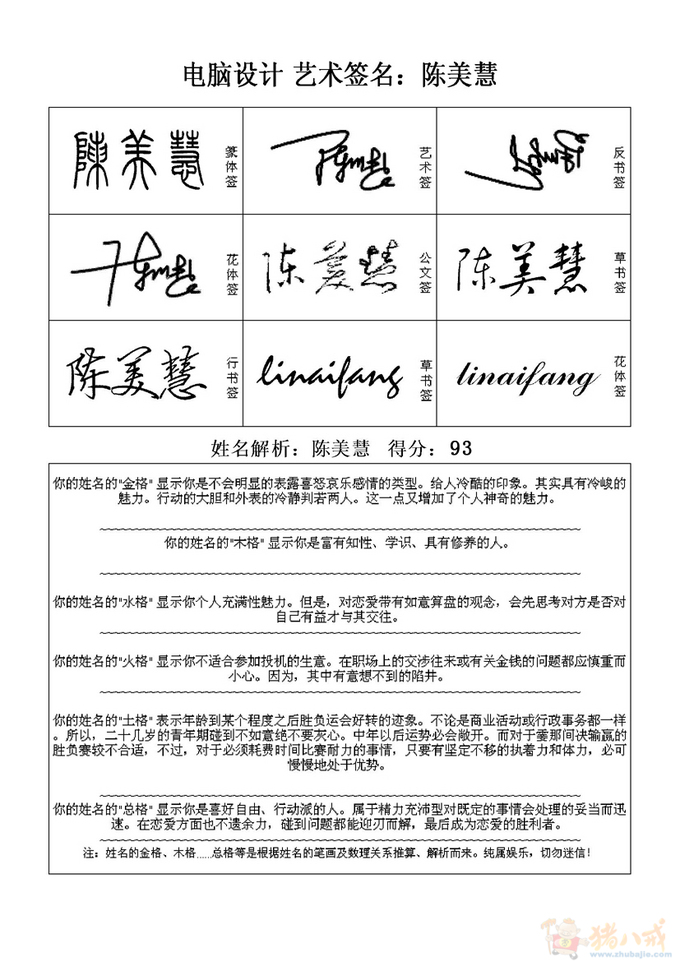 电脑设计 艺术签名：陈美慧
陳美慧
篆体签
艺术签
反书签
花体签
陈美慧
公文签
陈美慧
草书签
陈美慧
行书签
linaifang
草书签
linaifang
花体签
姓名解析：陈美慧 得分：93
你的姓名的"金格" 显示你是不会明显的表露喜怒哀乐感情的类型。给人冷酷的印象。其实具有冷峻的
魅力。行动的大胆和外表的冷静判若两人。这一点又增加了个人神奇的魅力。
你的姓名的"木格" 显示你是富有知性、学识、具有修养的人。
你的姓名的"水格" 显示你个人充满性魅力。但是，对恋爱带有如意算盘的观念，会先思考对方是否对
自己有益才与其交往。
你的姓名的"火格" 显示你不适合参加投机的生意。在职场上的交涉往来或有关金钱的问题都应慎重而
小心。因为，其中有意想不到的陷井。
你的姓名的"土格" 表示年龄到某个程度之后胜负运会好转的迹象。不论是商业活动或行政事务都一样
。所以，二十几岁的青年期碰到不如意绝不要灰心。中年以后运势必会敞开。而对于霎那间决输赢的
胜负赛较不合适，不过，对于必须耗费时间比赛耐力的事情，只要有坚定不移的执着力和体力，必可
慢慢地处于优势。
你的姓名的"总格" 显示你是喜好自由、行动派的人。属于精力充沛型对既定的事情会处理的妥当而迅
速。在恋爱方面也不遗余力，碰到问题都能迎刃而解，最后成为恋爱的胜利者。
注：姓名的金格、木格......总格等是根据姓名的笔画及数理关系推算、解析而来。纯属娱乐，切勿迷信！
猪八戒
www.zhubajie.com